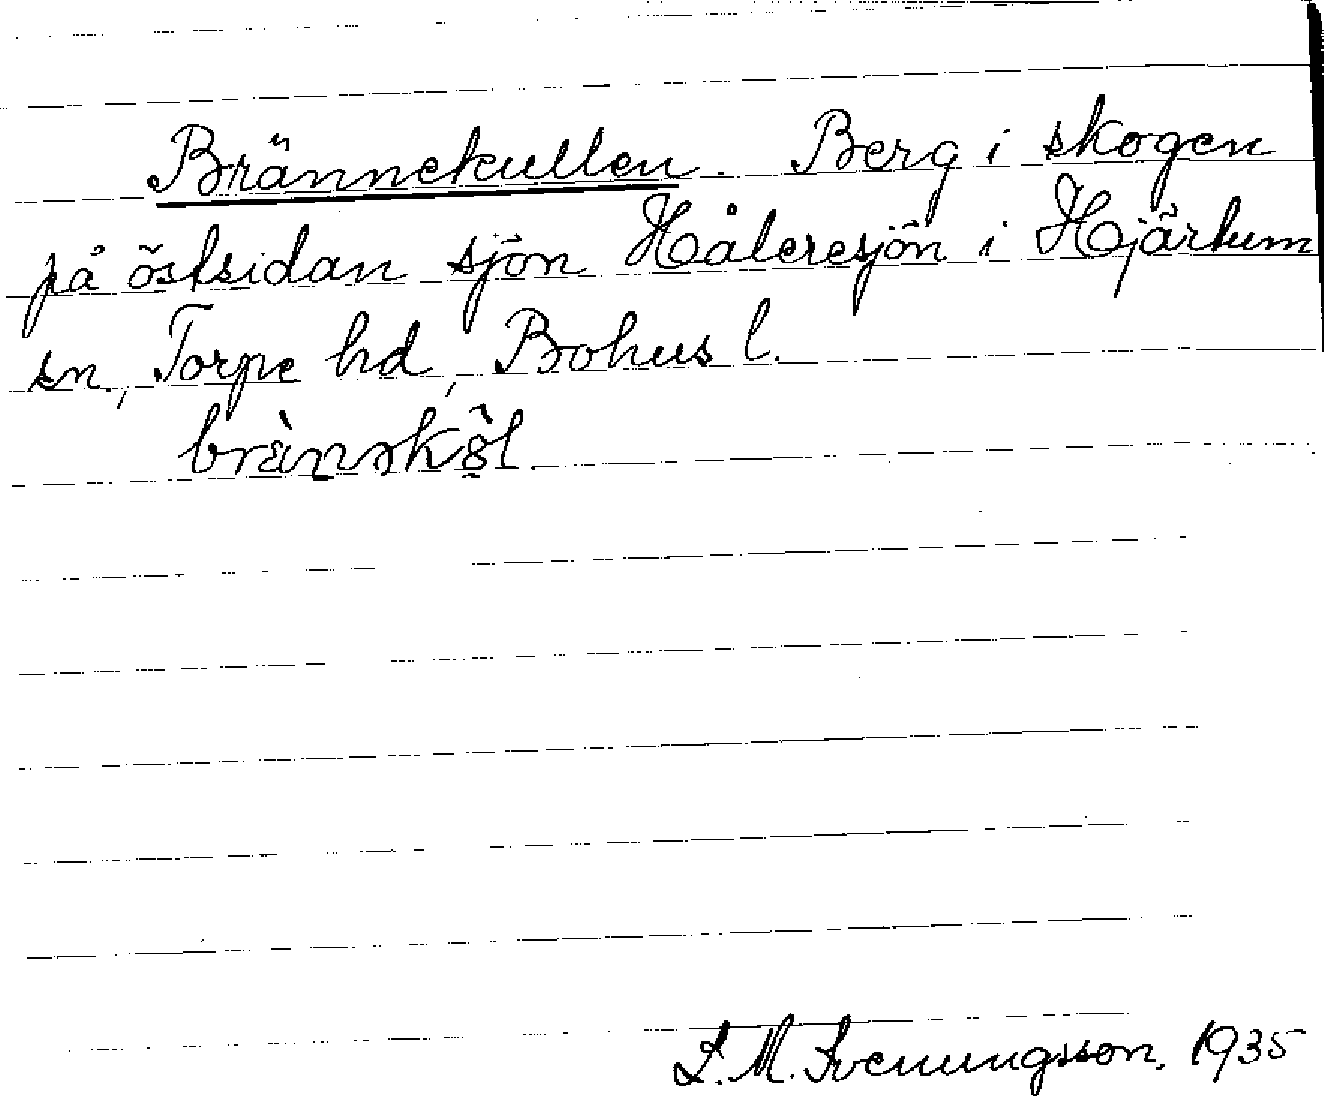 Brännekullen. Berg i skogen
på östsidan sjön Håleresjön i Hjärtum
sn, Torpe hd, Bohus l.
brä̀nəkö̀l
S. M. Svenungsson. 1935